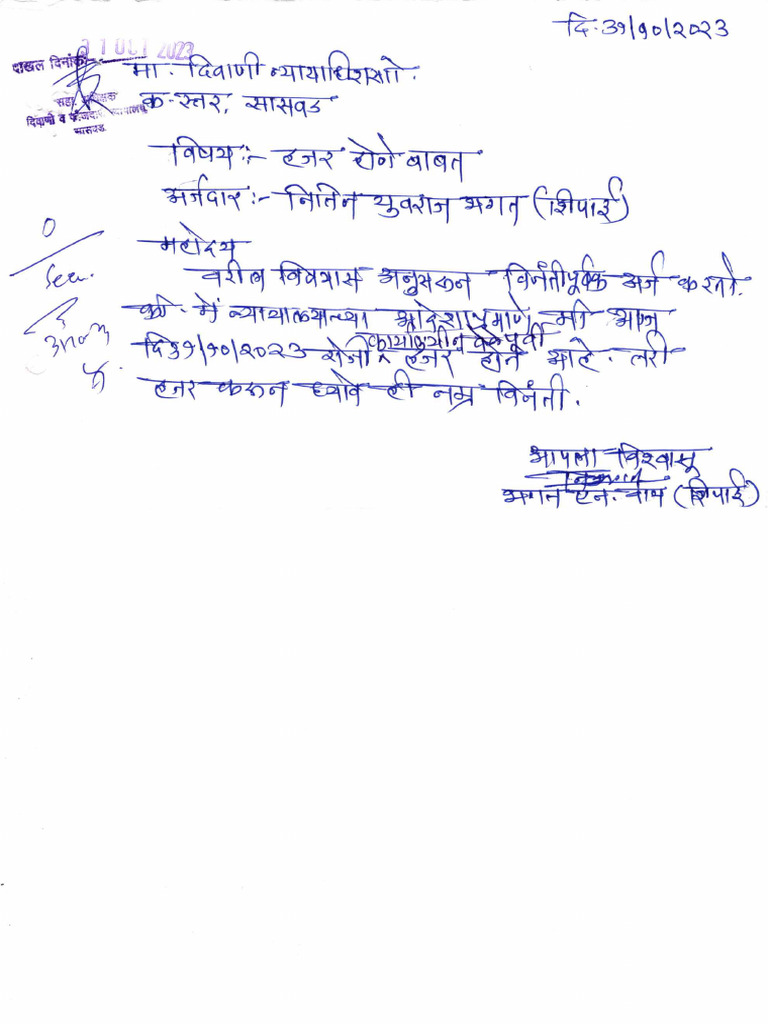 दि. ३१/१०/२०२३
31 OCT 2023
दाखल दिनांक
सहा. अधिक्षक
दिवाणी व फौजदारी न्यायालय
सासवड
मा. दिवाणी न्यायाधिशसो.
क-स्तर, सासवड
विषय:- हजर होणे बाबत
अर्जदार:- नितिन युवराज भगत (शिपाई)
महोदय
वरील विषयास अनुसरून विनंतीपूर्वक अर्ज करतो.
की. मे. न्यायालयाच्या आदेशाप्रमाणे मी आज
कार्यालयीन वेळेपूर्वी
दि ३१/१०/२०२३ रोजी ^ हजर होत आहे. तरी
हजर करून घ्यावे ही नम्र विनंती.
O
Seen.
आपला विश्वासू
भगत एन. वाय (शिपाई)